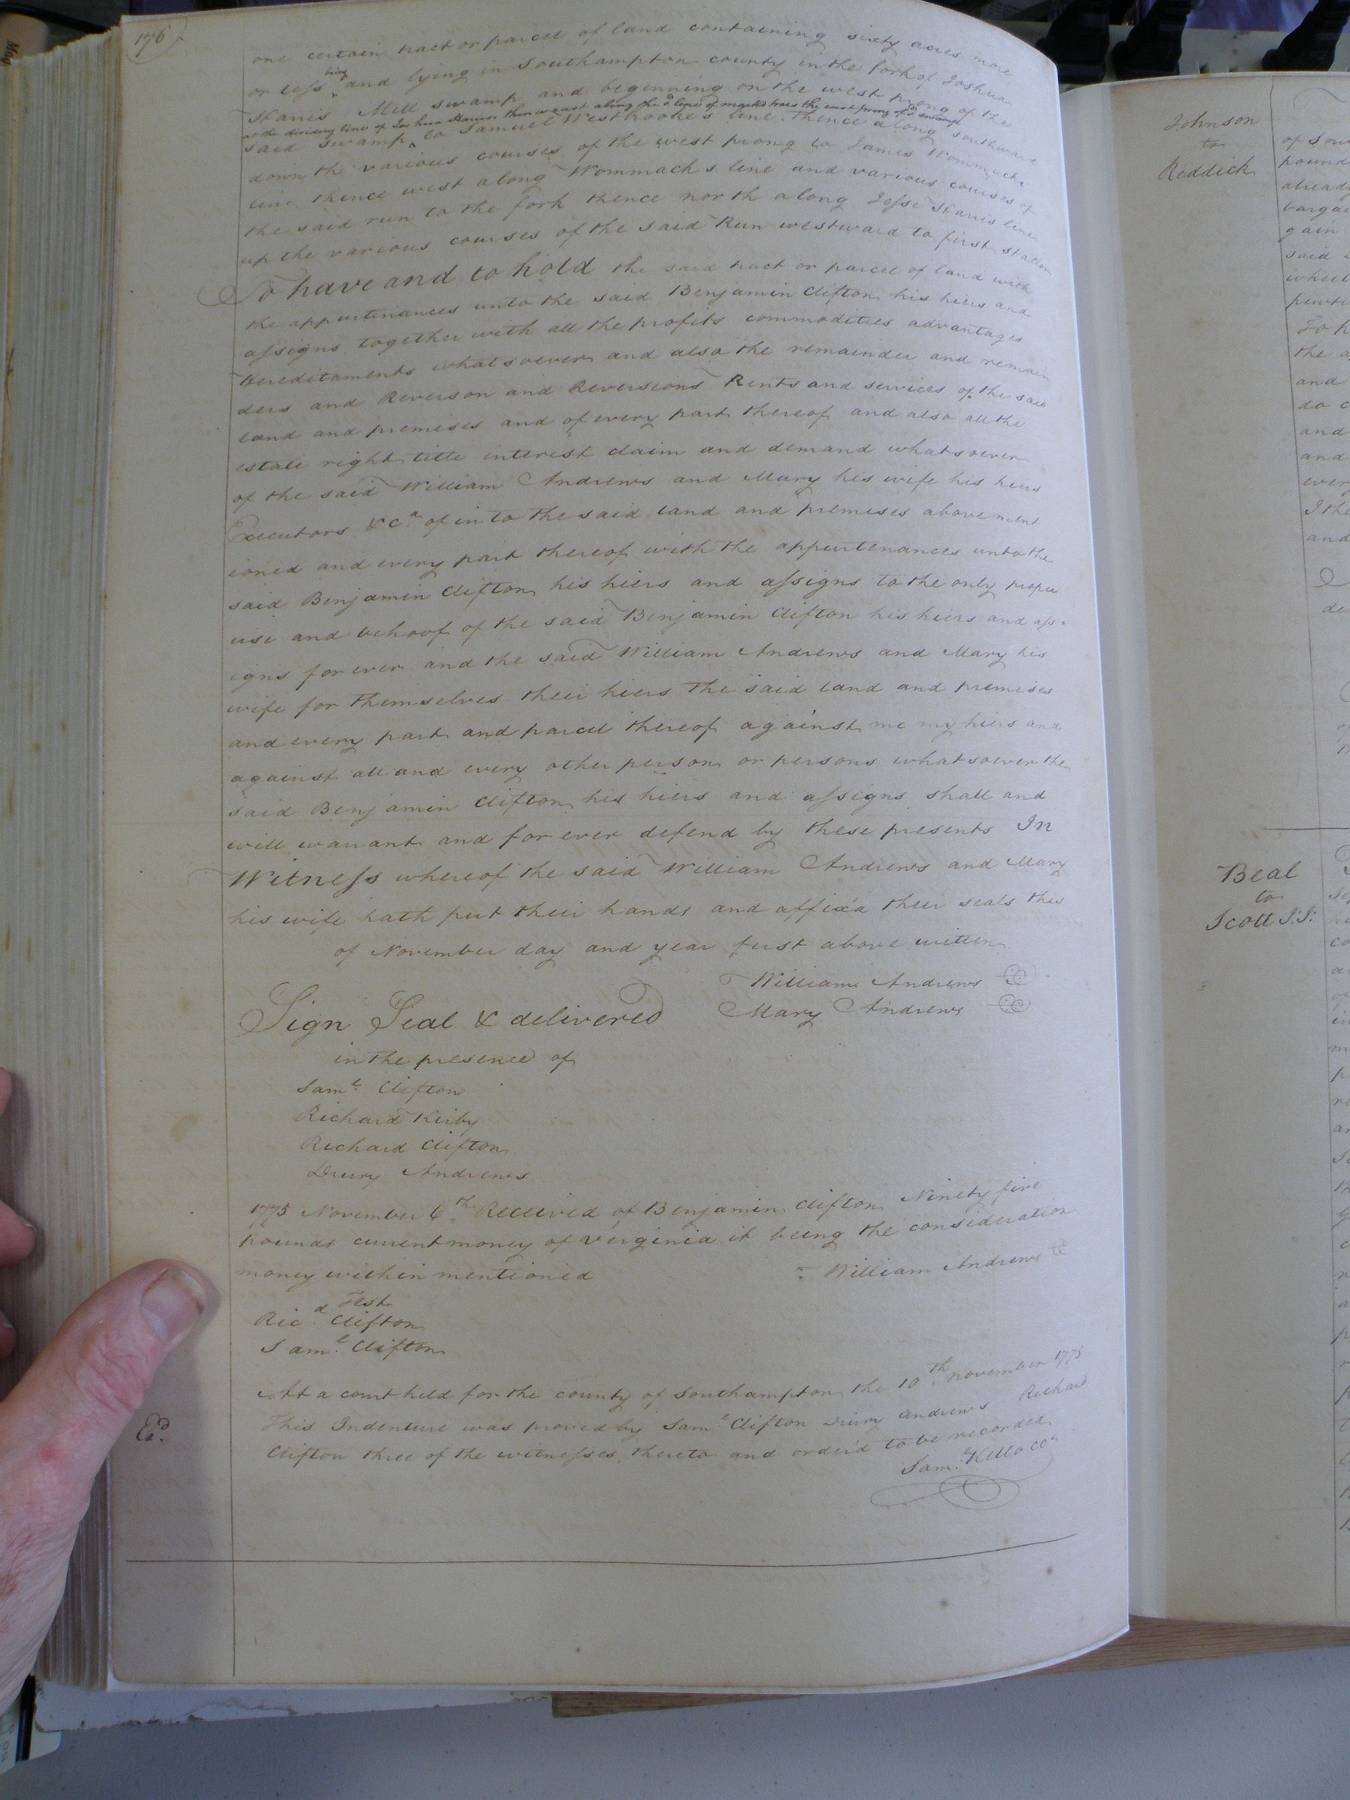 176
one certain tract or parcel of land containing sixty acres more
or less being and lying in Southampton county in the fork of Joshua
Stanis Mill swamp and beginning on the west prong of the
at the dividing line of Joshua Stanis thence east along the a line of marked trees the east prong of sd swamp
said swamp to Samuel Westbrooke's line thence along southward
down the various courses of the west prong to James Wommacks
line thence west along Wommachs line and various courses of
the said run to the fork thence north along Jesse Stanis line
up the various courses of the said Run westward to first station
To have and to hold the said tract or parcel of land with
the appurtenances unto the said Benjamin Clifton his hiers and
assigns together with all the profits commodities advantages
Hereditaments whatsoever and also the remainder and remain
ders and Reverson and Reversions Rents and services of the said
land and premises and of every part thereof and also all the
estate right title interest claim and demand whatsoever
of the said William Andrews and Mary his wife his hiers
Executors &ca of in to the said land and premises above ment
ioned and every part thereof with the appurtenances unto the
said Benjamin Clifton his hiers and assigns to the only proper
use and behoof of the said Benjamin Clifton his hiers and ass-
igns for ever and the said William Andrews and Mary his
wife for themselves their hiers the said land and premises
and every part and parcel thereof against me my hiers and
against all and every other person or persons whatsoever the
said Benjamin Clifton his hiers and assigns shall and
will warrant and for ever defend by these presents In
Witness whereof the said William Andrews and Mary
his wife hath put their hands and affix'd their seals this
of November day and year first above written
William Andrews
Mary Andrews
Sign Seal & delivered
in the presence of
Saml. Clifton
Richard Kirby
Richard Clifton
Drury Andrews
1775 November 6th. Received of Benjamin Clifton Ninety five
pounds current money of Verginia it being the consideration
money within mentioned
William Andrews
Test
Ricd. Clifton
Saml. Clifton
At a court held for the county of Southampton the 10th. November 1775
This Indenture was proved by Saml. Clifton Drury Andrews Richard
Clifton three of the witnesses thereto and order'd to be recorded
Saml. Kello CCr
Exd.
Johnson
to
Reddick
of
pound
already
barga
gain
said
pewt
Joh
the a
and
do c
and
and
ever
I the
and
Beal
to
Scott J:J: